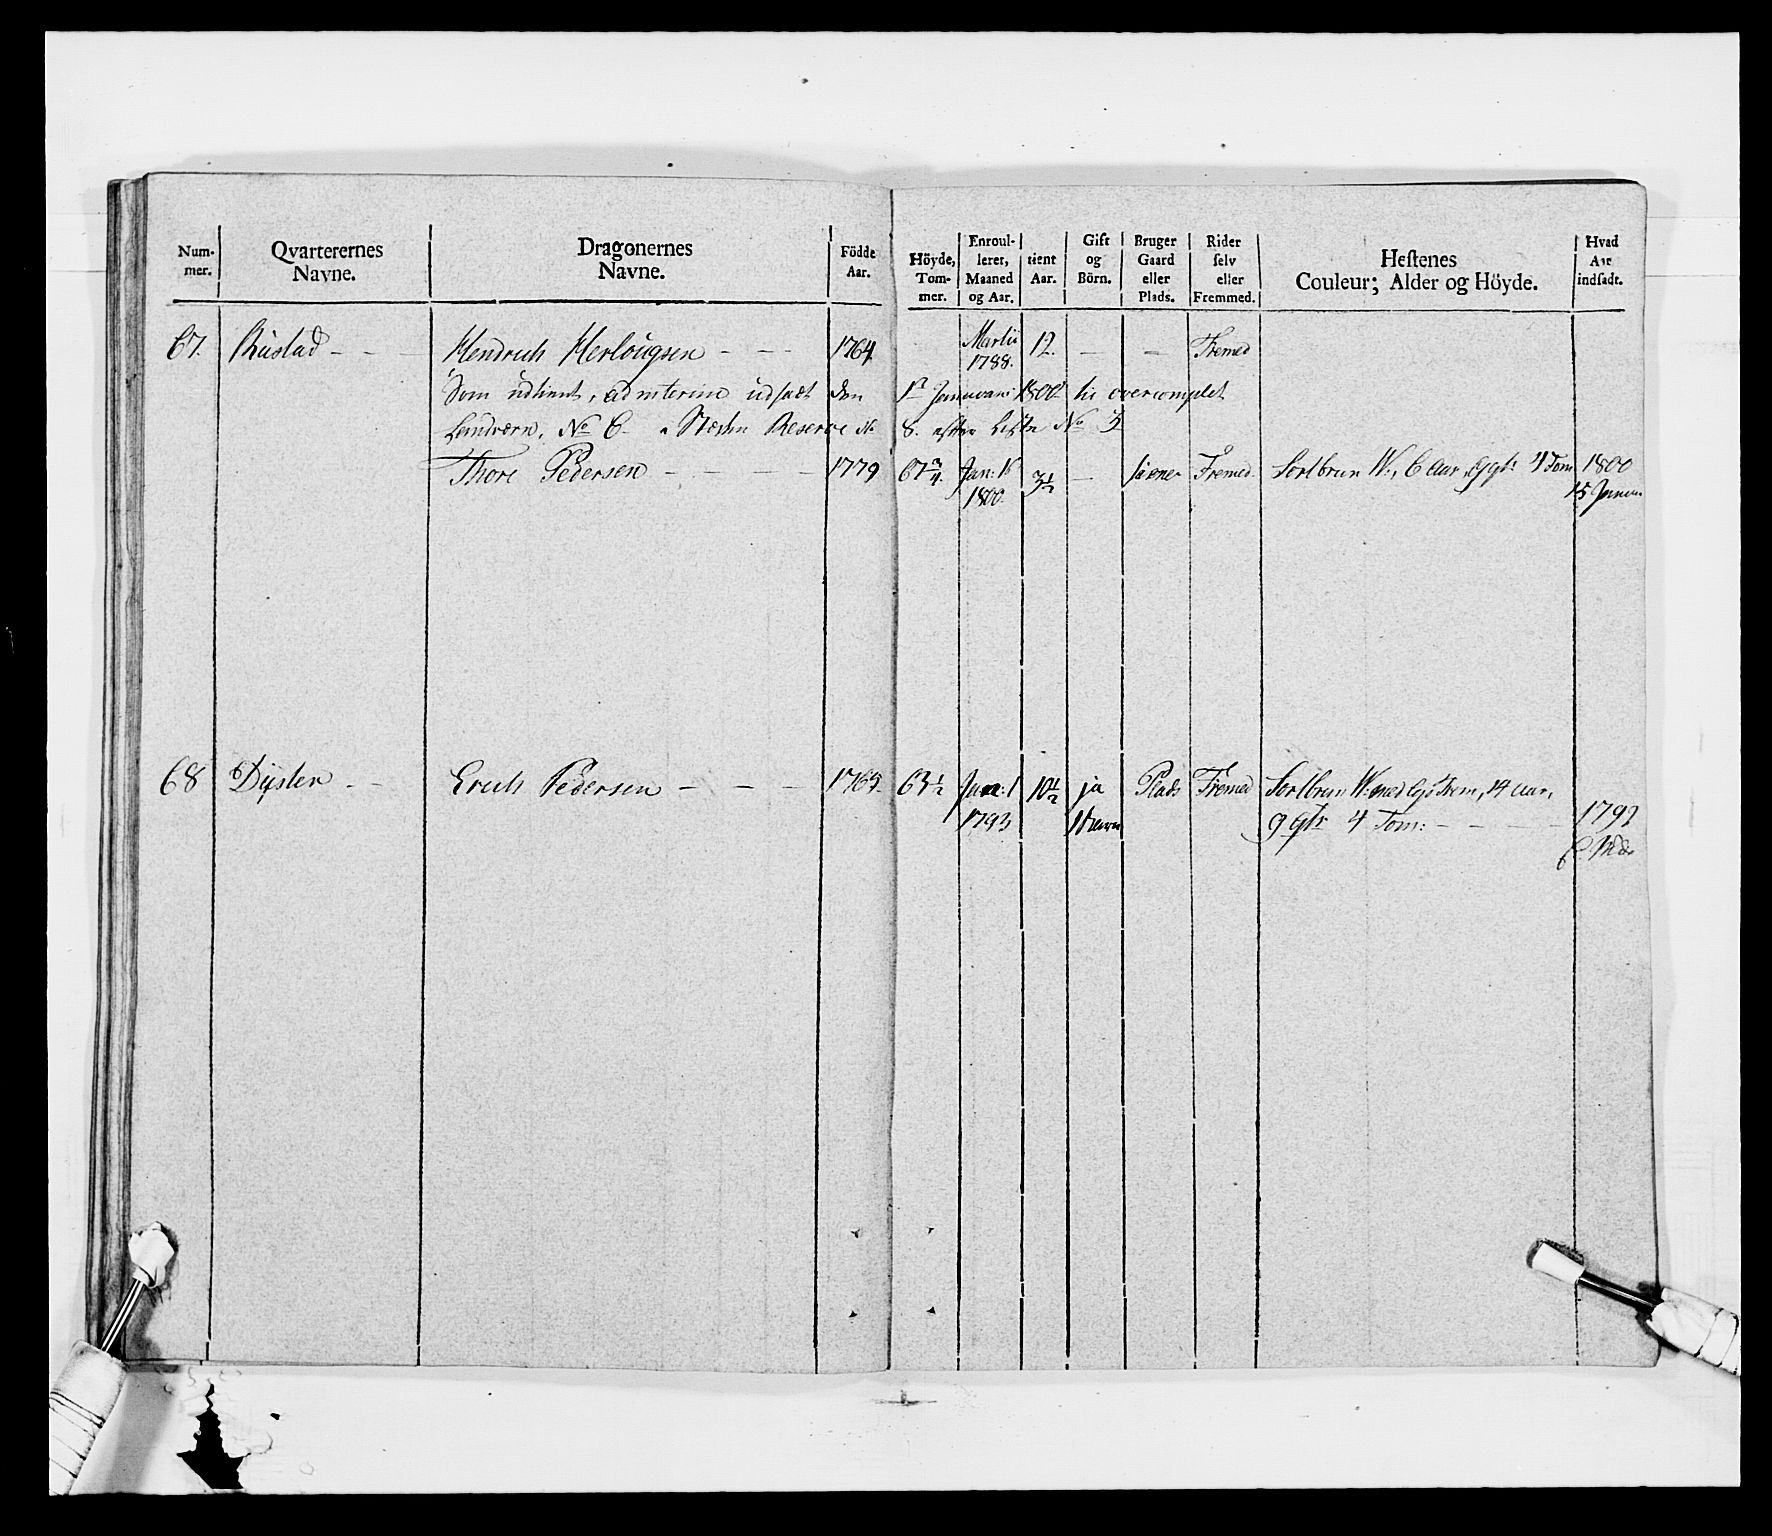 Num-
mer.
Qvarterernes
Navne.
Dragonernes
Navne.
Födde
Aar.
Höyde,
Tom-
mer.
Enroul-
leret,
Maaned
og Aar.
tient
Aar.
Gift
og
Börn.
Bruger
Gaard
eller
Plads.
Rider
selv
eller
Fremmed.
Hestenes
Couleur; Alder og Höyde.
Hvad
Aar
indsadt.
67. Rustad - - - Hendrich Herlougsen - - - 1764. Martii 12. - - Fremed
1788.
Som udtient, ad interim udsadt den 1te Januari 1800 til overcomplet
Landværn, No 6. Reserve No 8. efter Liste No 3
Thore Pedersen - - - - 1779 67 3/4. Jan: 3 1/2 - Fremed. Sortbrun W., 6 Aar, 9 qtr 4 Tom 1800
1800. 15 Januar
68 Dysten - - Erich Pedersen - - - - 63 1/2 Jan: 1 10 1/2 ja Plads Fremed Sortbrun W. med lys Krem, 14 aar,
1793 9 qtr 4 Tom: - - - - 1792